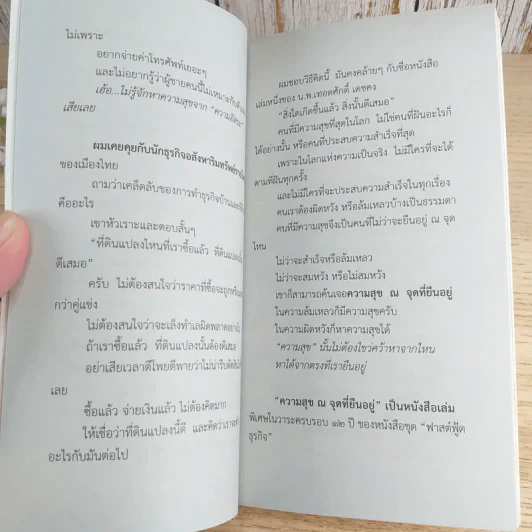 ไม่เพราะ
อยากจ่ายค่าโทรศัพท์เยอะๆ
และไม่อยากรู้ว่าผู้ชายคนนี้ไม่เหมาะกับ
เฮ้อ...ไม่รู้จักหาความสุขจาก
เสียเลย
ผมเคยคุยกับนักธุรกิจอสังหาริมทรัพย์
ของเมืองไทย
ถามว่าเคล็ดลับของการทำธุรกิจบ้านและ
คืออะไร
เขาหัวเราะและตอบสั้นๆ
"ที่ดินแปลงไหนที่เราซื้อแล้ว ที่ดินแปลง
ดีเสมอ"
ครับ ไม่ต้องสนใจว่าราคาที่ซื้อจะถูกหรือ
กว่าคู่แข่ง
ไม่ต้องสนใจว่าจะเล็งทำเลผิดพลาดอย่าง
ถ้าเราซื้อแล้ว ที่ดินแปลงนั้นต้องดีเสมอ
อย่าเสียเวลาตีโพยตีพายว่าไม่น่ารีบตัดสิน
เลย
ซื้อแล้ว จ่ายเงินแล้ว ไม่ต้องคิดมาก
ให้เชื่อว่าที่ดินแปลงนี้ดี และคิดว่าเราจะ
อะไรกับมันต่อไป
ผมชอบวิธีคิดนี้ มันคงคล้ายๆ กับชื่อหนังสือ
เล่มหนึ่งของ น.พ.เทอดศักดิ์ เดชคง
"สิ่งใดเกิดขึ้นแล้ว สิ่งนั้นดีเสมอ"
คนที่มีความสุขที่สุดในโลก ไม่ใช่คนที่ฝันอะไรก็
ได้อย่างนั้น หรือคนที่ประสบความสำเร็จที่สุด
เพราะในโลกแห่งความเป็นจริง ไม่มีใครที่จะได้
ตามที่ฝันทุกครั้ง
และไม่มีใครที่จะประสบความสำเร็จในทุกเรื่อง
คนเราต้องผิดหวัง หรือล้มเหลวบ้างเป็นธรรมดา
คนที่มีความสุขจึงเป็นคนที่ไม่ว่าจะยืนอยู่ ณ จุด
ไหน
ไม่ว่าจะสำเร็จหรือล้มเหลว
ไม่ว่าจะสมหวัง หรือไม่สมหวัง
เขาก็สามารถค้นเจอความสุข ณ จุดที่ยืนอยู่
ในความล้มเหลวก็มีความสุขครับ
ในความผิดหวังก็หาความสุขได้
"ความสุข" นั้นไม่ต้องไขว่คว้าหาจากไหน
หาได้จากตรงที่เรายืนอยู่
"ความสุข ณ จุดที่ยืนอยู่" เป็นหนังสือเล่ม
พิเศษในวาระครบรอบ ๑๒ ปี ของหนังสือชุด "ฟาสต์ฟู้ด
ธุรกิจ"